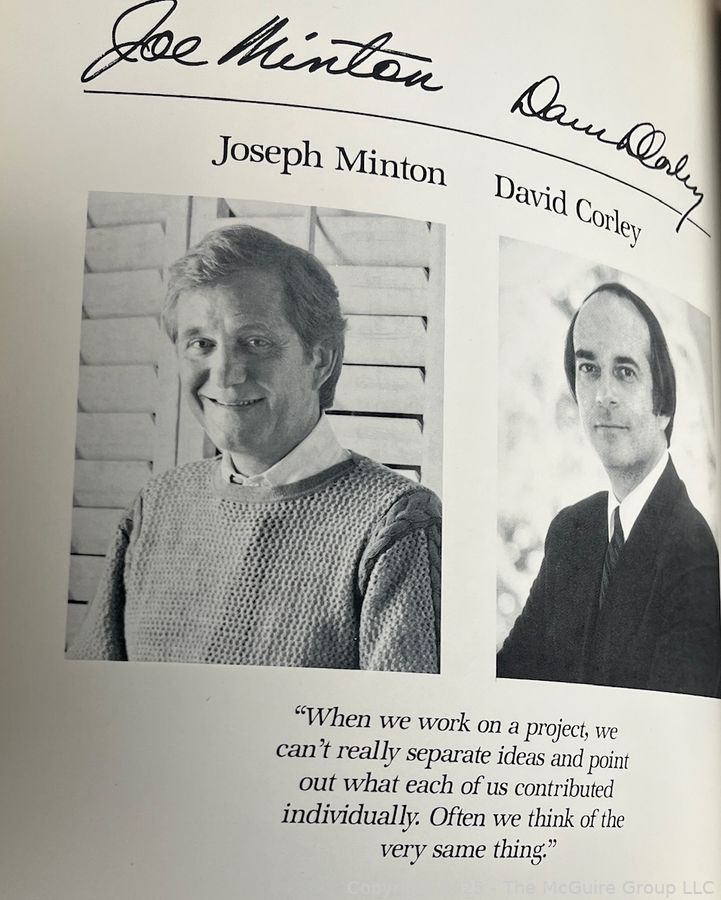 Joe Minton
Dave Corley
Joseph Minton
David Corley
“When we work on a project, we
can’t really separate ideas and point
out what each of us contributed
individually. Often we think of the
very same thing.”
The McGuire Group LLC